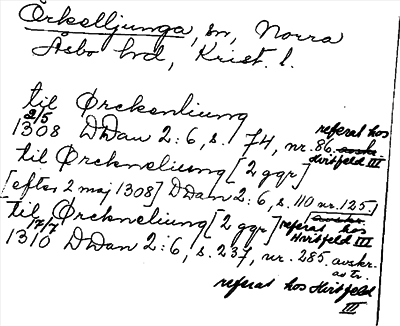 Örkelljunga, sn, Norra
Åsbo hd, Krist. l.
til Ørckenliung
2/5
1308 DDan 2:6, s. 74, nr. 86. avskr. referat hos Hvitfeld III
til Ørckneliung [2 ggr]
[efter 2 maj 1308] DDan 2:6, s. 110 nr. 125]
til Ørckneliung [2 ggr] avskr. referat hos Hvitfeld III
17/7
1310 DDan 2:6, s. 237, nr. 285. avskr.
av tr.
referat hos Hvitfeld
III